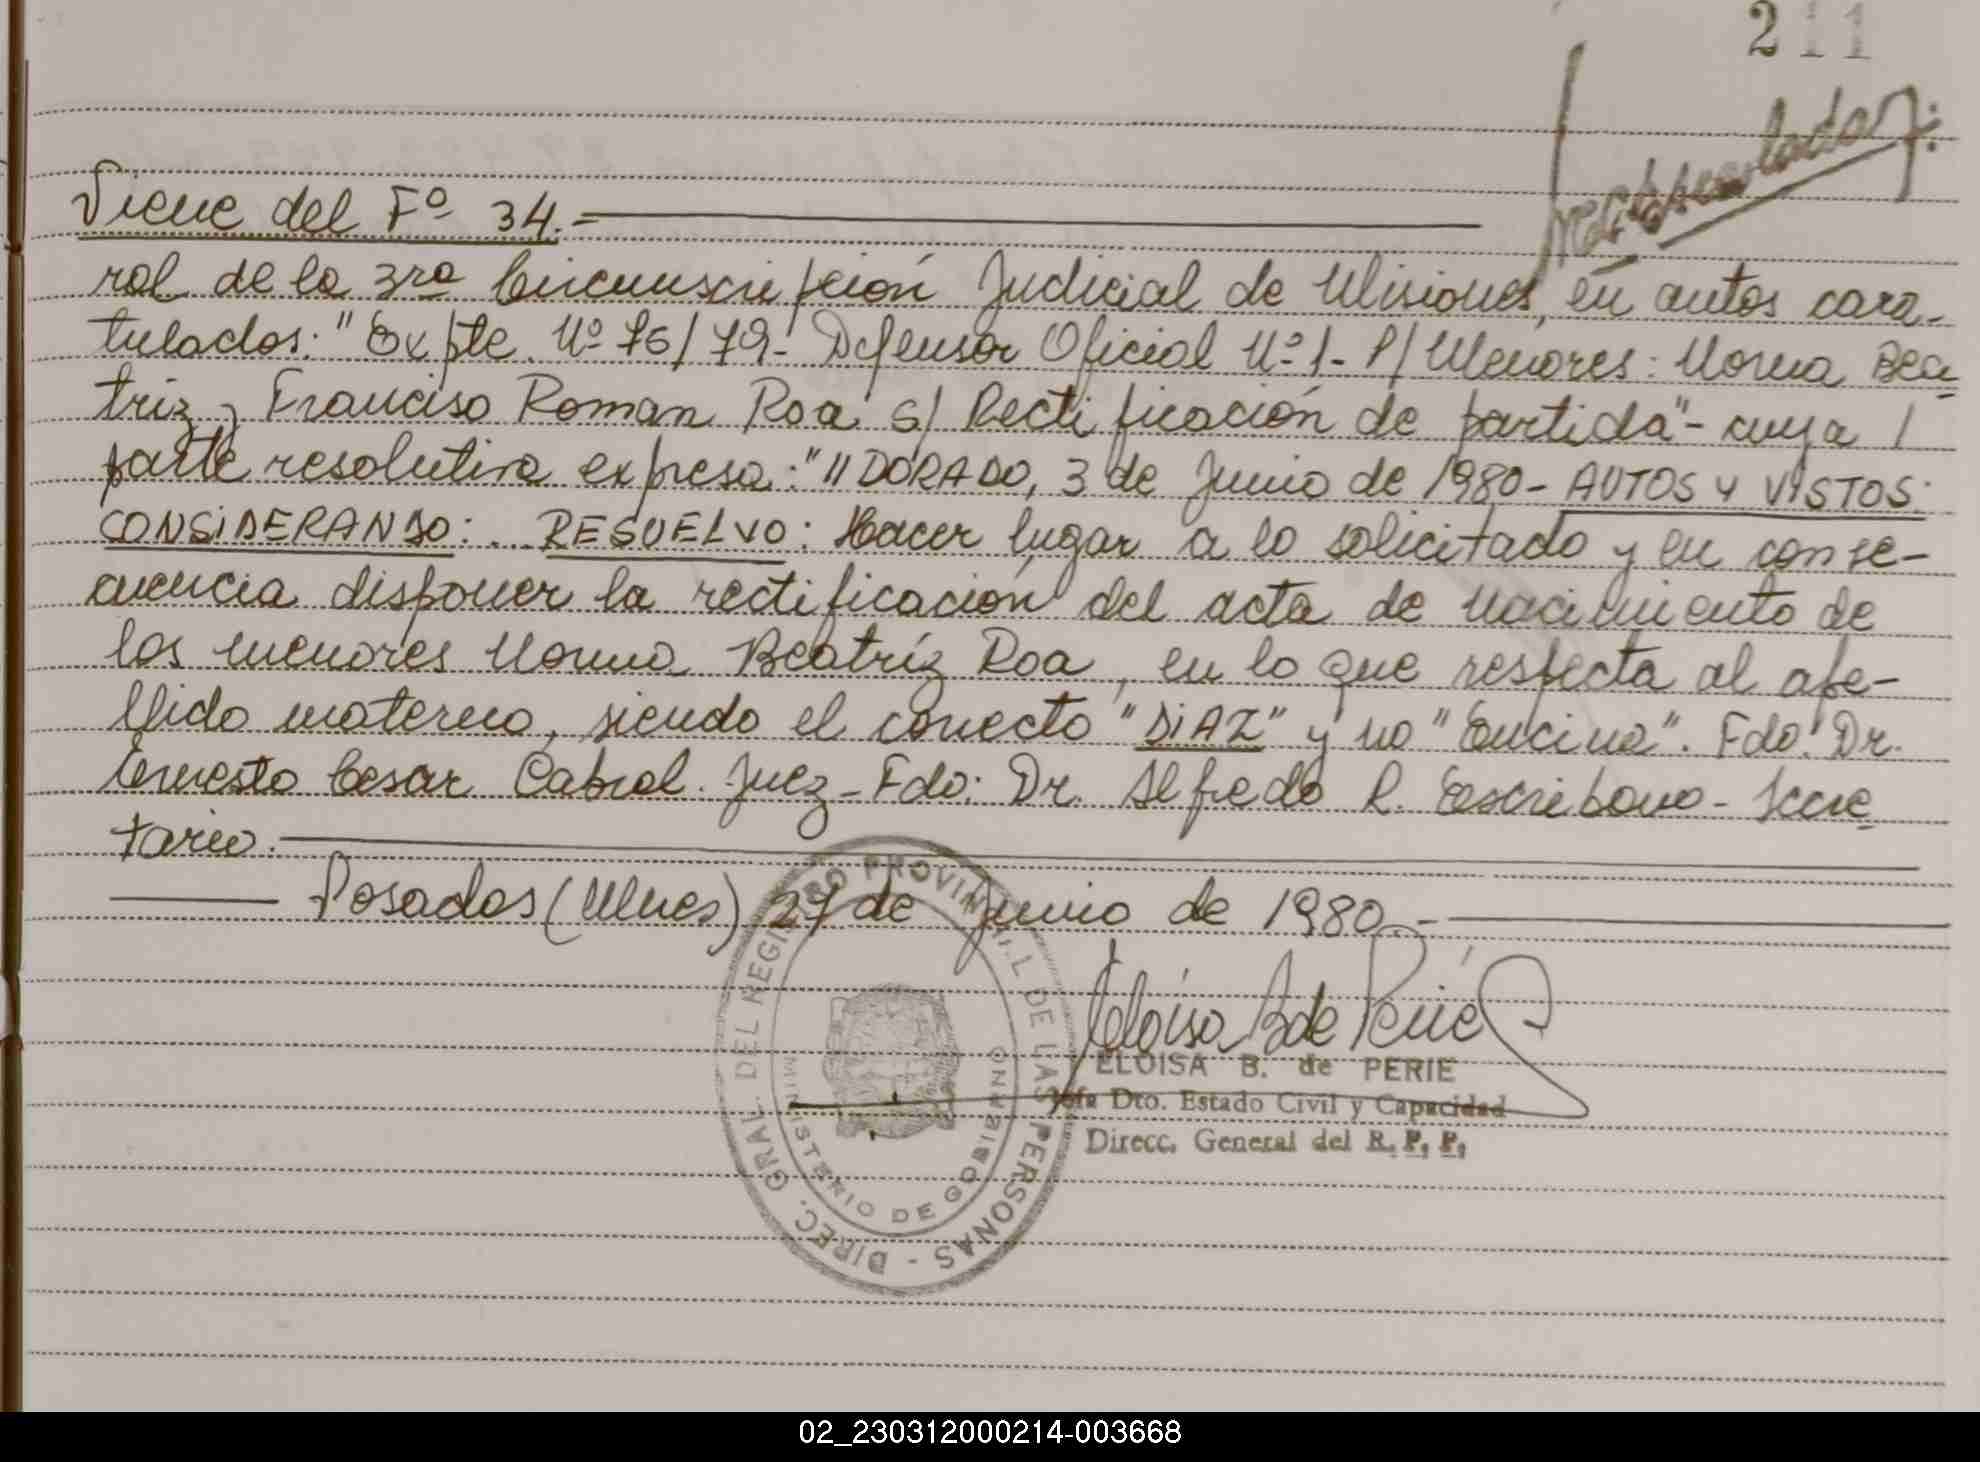 211
Viene del Fº 34.-
ral de la 3ra Circunscripción Judicial de Misiones, en autos cara-
tulados: "Expte. Nº 76/79- Defensor Oficial Nº 1- P/ Menores: Norma Bea-
triz y Francisco Roman Roa s/ Rectificación de partida"- cuya /
parte resolutiva expresa: "//DORADO, 3 de Junio de 1980- AUTOS Y VISTOS:
CONSIDERANDO: .. RESUELVO: Hacer lugar a lo solicitado y en conse-
cuencia disponer la rectificación del acta de nacimiento de
los menores Norma Beatríz Roa, en lo que respecta al ape-
llido materno, siendo el correcto "DiAZ" y no "Encina". Fdo: Dr.
Ernesto Cesar Cabral. Juez- Fdo: Dr. Alfredo R. Escribano- Secre-
tario.
Posadas (Mnes) 27 de Junio de 1980.-
Eloísa B de Perié
ELOISA B. de PERIE
Jefa Dto. Estado Civil y Capacidad
Direcc. General del R. P. P.
DIREC. GRAL. DEL REGISTRO PROVINCIAL DE LAS PERSONAS -
MINISTERIO DE GOBIERNO
02_230312000214-003668